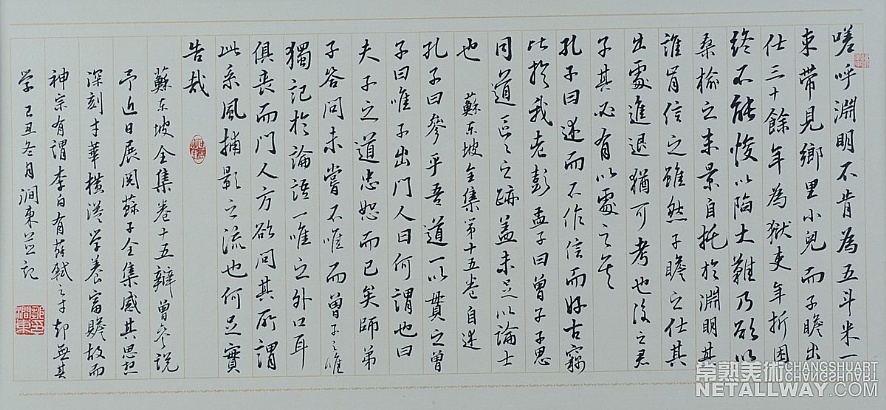 嗟呼淵明不肯為五斗米一
束帶見鄉里小兒而子瞻出
仕三十餘年為獄吏年折困
終不能悛以陷大難乃欲以
桑榆之末景自托於淵明其
誰肯信之雖然子瞻之仕其
出處進退猶可考也後之君
子其必有以處之矣
孔子曰述而不作信而好古竊
比於我老彭孟子曰曾子子思
同道區區之跡蓋未足以論士
也 蘇東坡全集第十五卷自述
孔子曰參乎吾道一以貫之曾
子曰唯子出門人曰何謂也曰
夫子之道忠恕而已矣師弟
子答問未嘗不唯而曾子之唯
獨記於論語一唯之外口耳
俱喪而門人方欲問其所謂
此系風捕影之流也何足實
告哉
蘇東坡全集卷十五辯曾參說
予近日展閱蘇子全集感其思想
深刻才華橫溢學養富贍故而
神宗有謂李白有蘇軾之才却無其
学 己丑冬月澗東並記
常熟美術 CHANGSHUART
NETALLWAY.COM